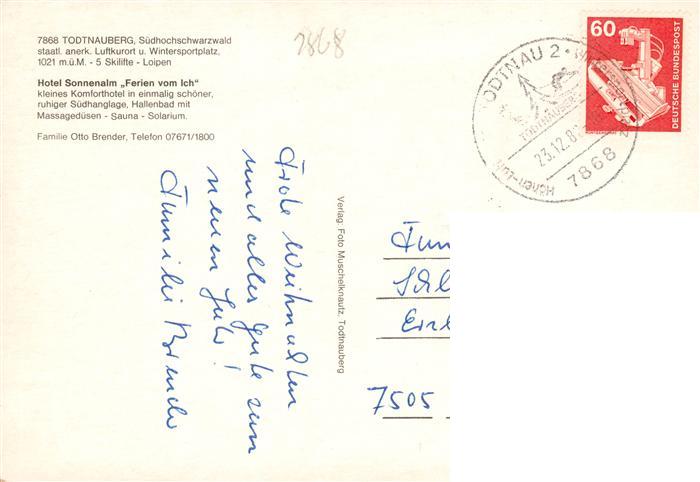 7868 TODTNAUBERG, Südhochschwarzwald
staatl. anerk. Luftkurort u. Wintersportplatz,
1021 m.ü.M. - 5 Skilifte - Loipen
Hotel Sonnenalm „Ferien vom Ich"
kleines Komforthotel in einmalig schöner,
ruhiger Südhanglage, Hallenbad mit
Massagedüsen - Sauna - Solarium.
Familie Otto Brender, Telefon 07671/1800
2868
Frohe Weihnachten
und alles gute zum
neuen Jahr!
Familie Brender
Verlag: Foto Muschelknautz, Todtnauberg
TODTNAU 2
TODTNAUBERG
23.12.8
7868
Höhen-Luft
60
DEUTSCHE BUNDESPOST
Fam
Schl
Erzb
7505